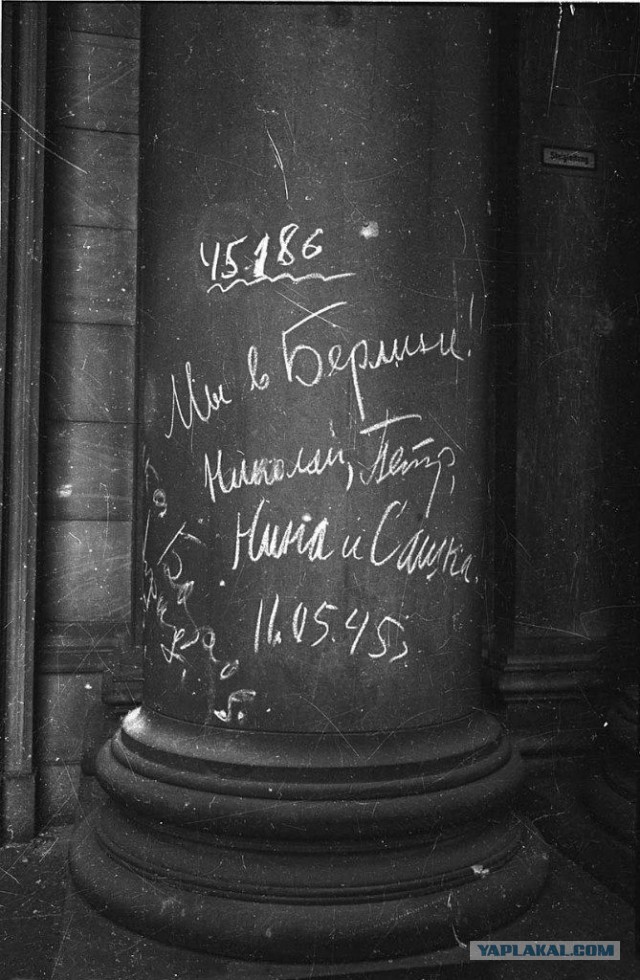 45.186
Мы в Берлине!
Николай, Петр,
Нина и Сашка.
11.05.45
YAPLAKAL.COM